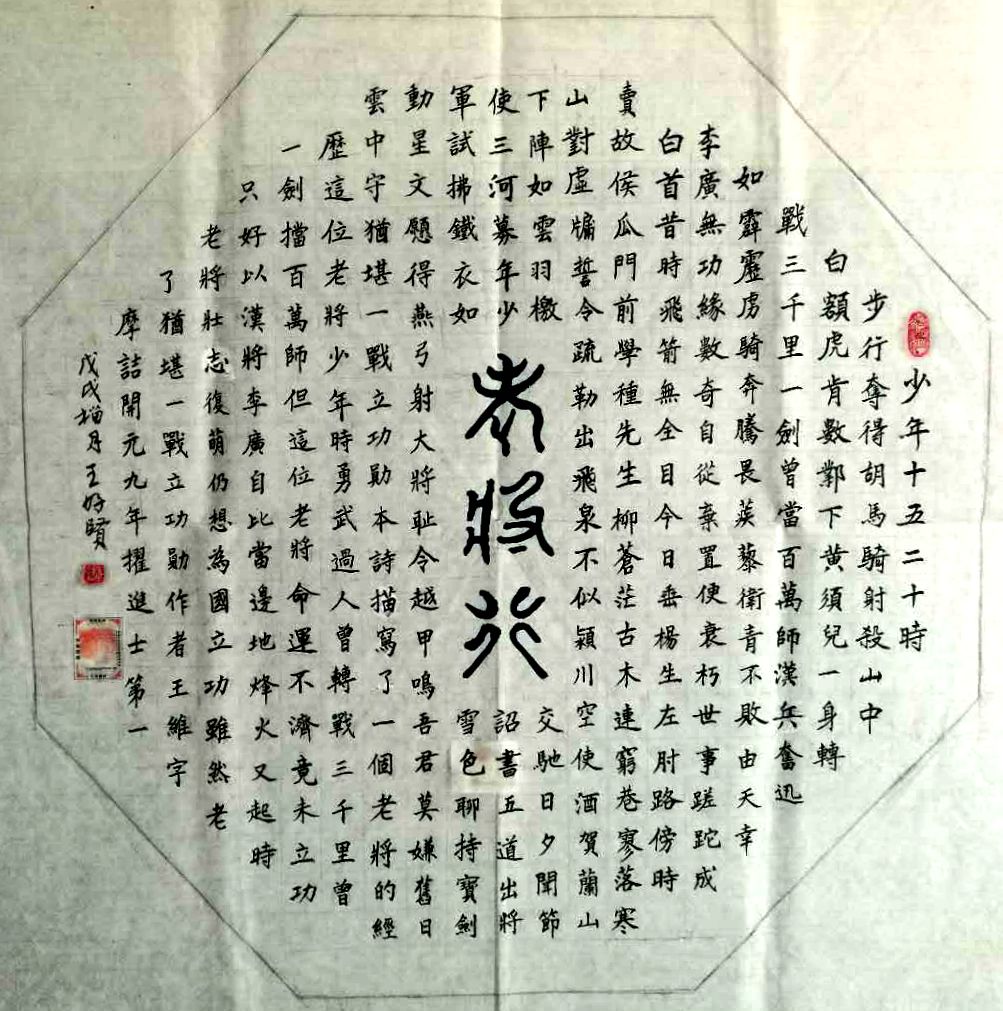 老將行
少年十五二十時
步行奪得胡馬騎射殺山中
白額虎肯數鄴下黄須兒一身轉
戰三千里一劍曾當百萬師漢兵奮迅
如霹靂虜騎奔騰畏蒺藜衛青不敗由天幸
李廣無功緣數奇自從棄置便衰朽世事蹉跎成
白首昔時飛箭無全目今日垂楊生左肘路傍時
賣故侯瓜門前學種先生柳蒼茫古木連窮巷寥落寒
山對虛牖誓令疏勒出飛泉不似潁川空使酒賀蘭山
下陣如雲羽檄交馳日夕聞節
使三河募年少詔書五道出將
軍試拂鐵衣如雪色聊持寶劍
動星文願得燕弓射大將耻令越甲鳴吾君莫嫌舊日
雲中守猶堪一戰立功勛本詩描寫了一個老將的經
歷這位老將少年時勇武過人曾轉戰三千里曾
一劍擋百萬師但這位老將命運不濟竟未立功
只好以漢將李廣自比當邊地烽火又起時
老將壯志復萌仍想為國立功雖然老
了猶堪一戰立功勛作者王維字
摩詰開元九年擢進士第一
戊戌榴月王好賢